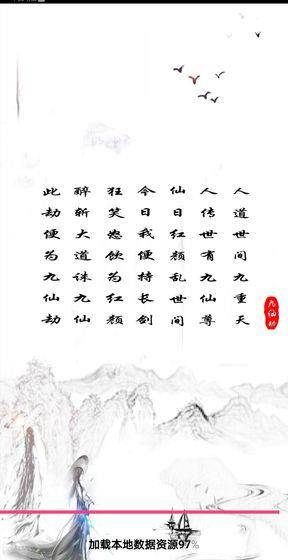 人道世间九重天
人传世有九仙尊
仙日红颜乱世间
今日我便持长剑
狂笑怒饮为红颜
醉斩大道诛九仙
此劫便为九仙劫
九仙劫
加载本地数据资源97%